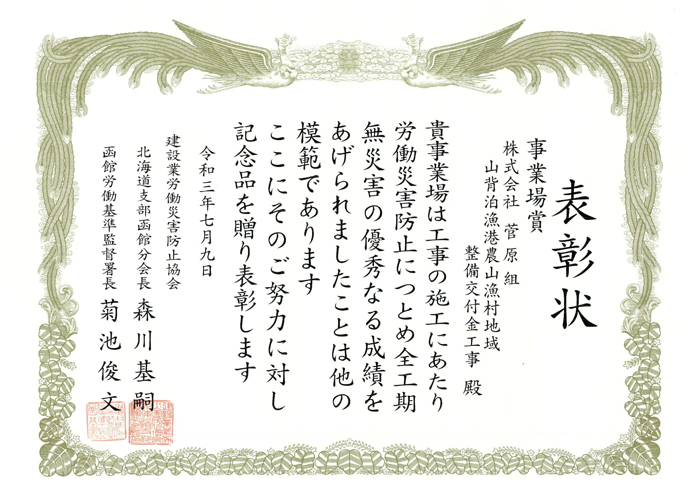 表彰状
事業場賞
株式会社 菅原組
山背泊漁港農山漁村地域
整備交付金工事 殿
貴事業場は工事の施工にあたり
労働災害防止につとめ全工期
無災害の優秀なる成績を
あげられましたことは他の
模範であります
ここにそのご努力に対し
記念品を贈り表彰します
令和三年七月九日
建設業労働災害防止協会
北海道支部函館分会長 森川基嗣
函館労働基準監督署長 菊池俊文